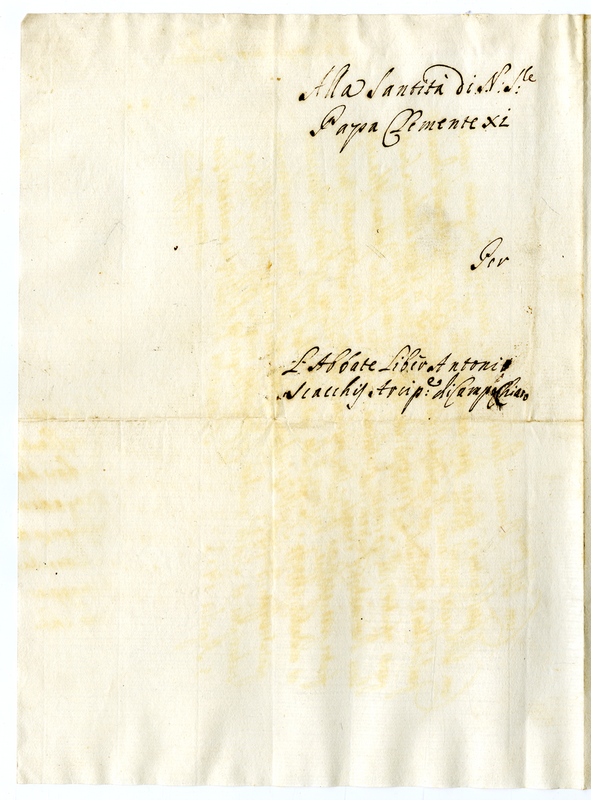 Alla Santità di N: S:le
Papa Clemente XI
Per
L'Abbate Liber Antonio
Scacchij Arcip.e di Campo Chiaro